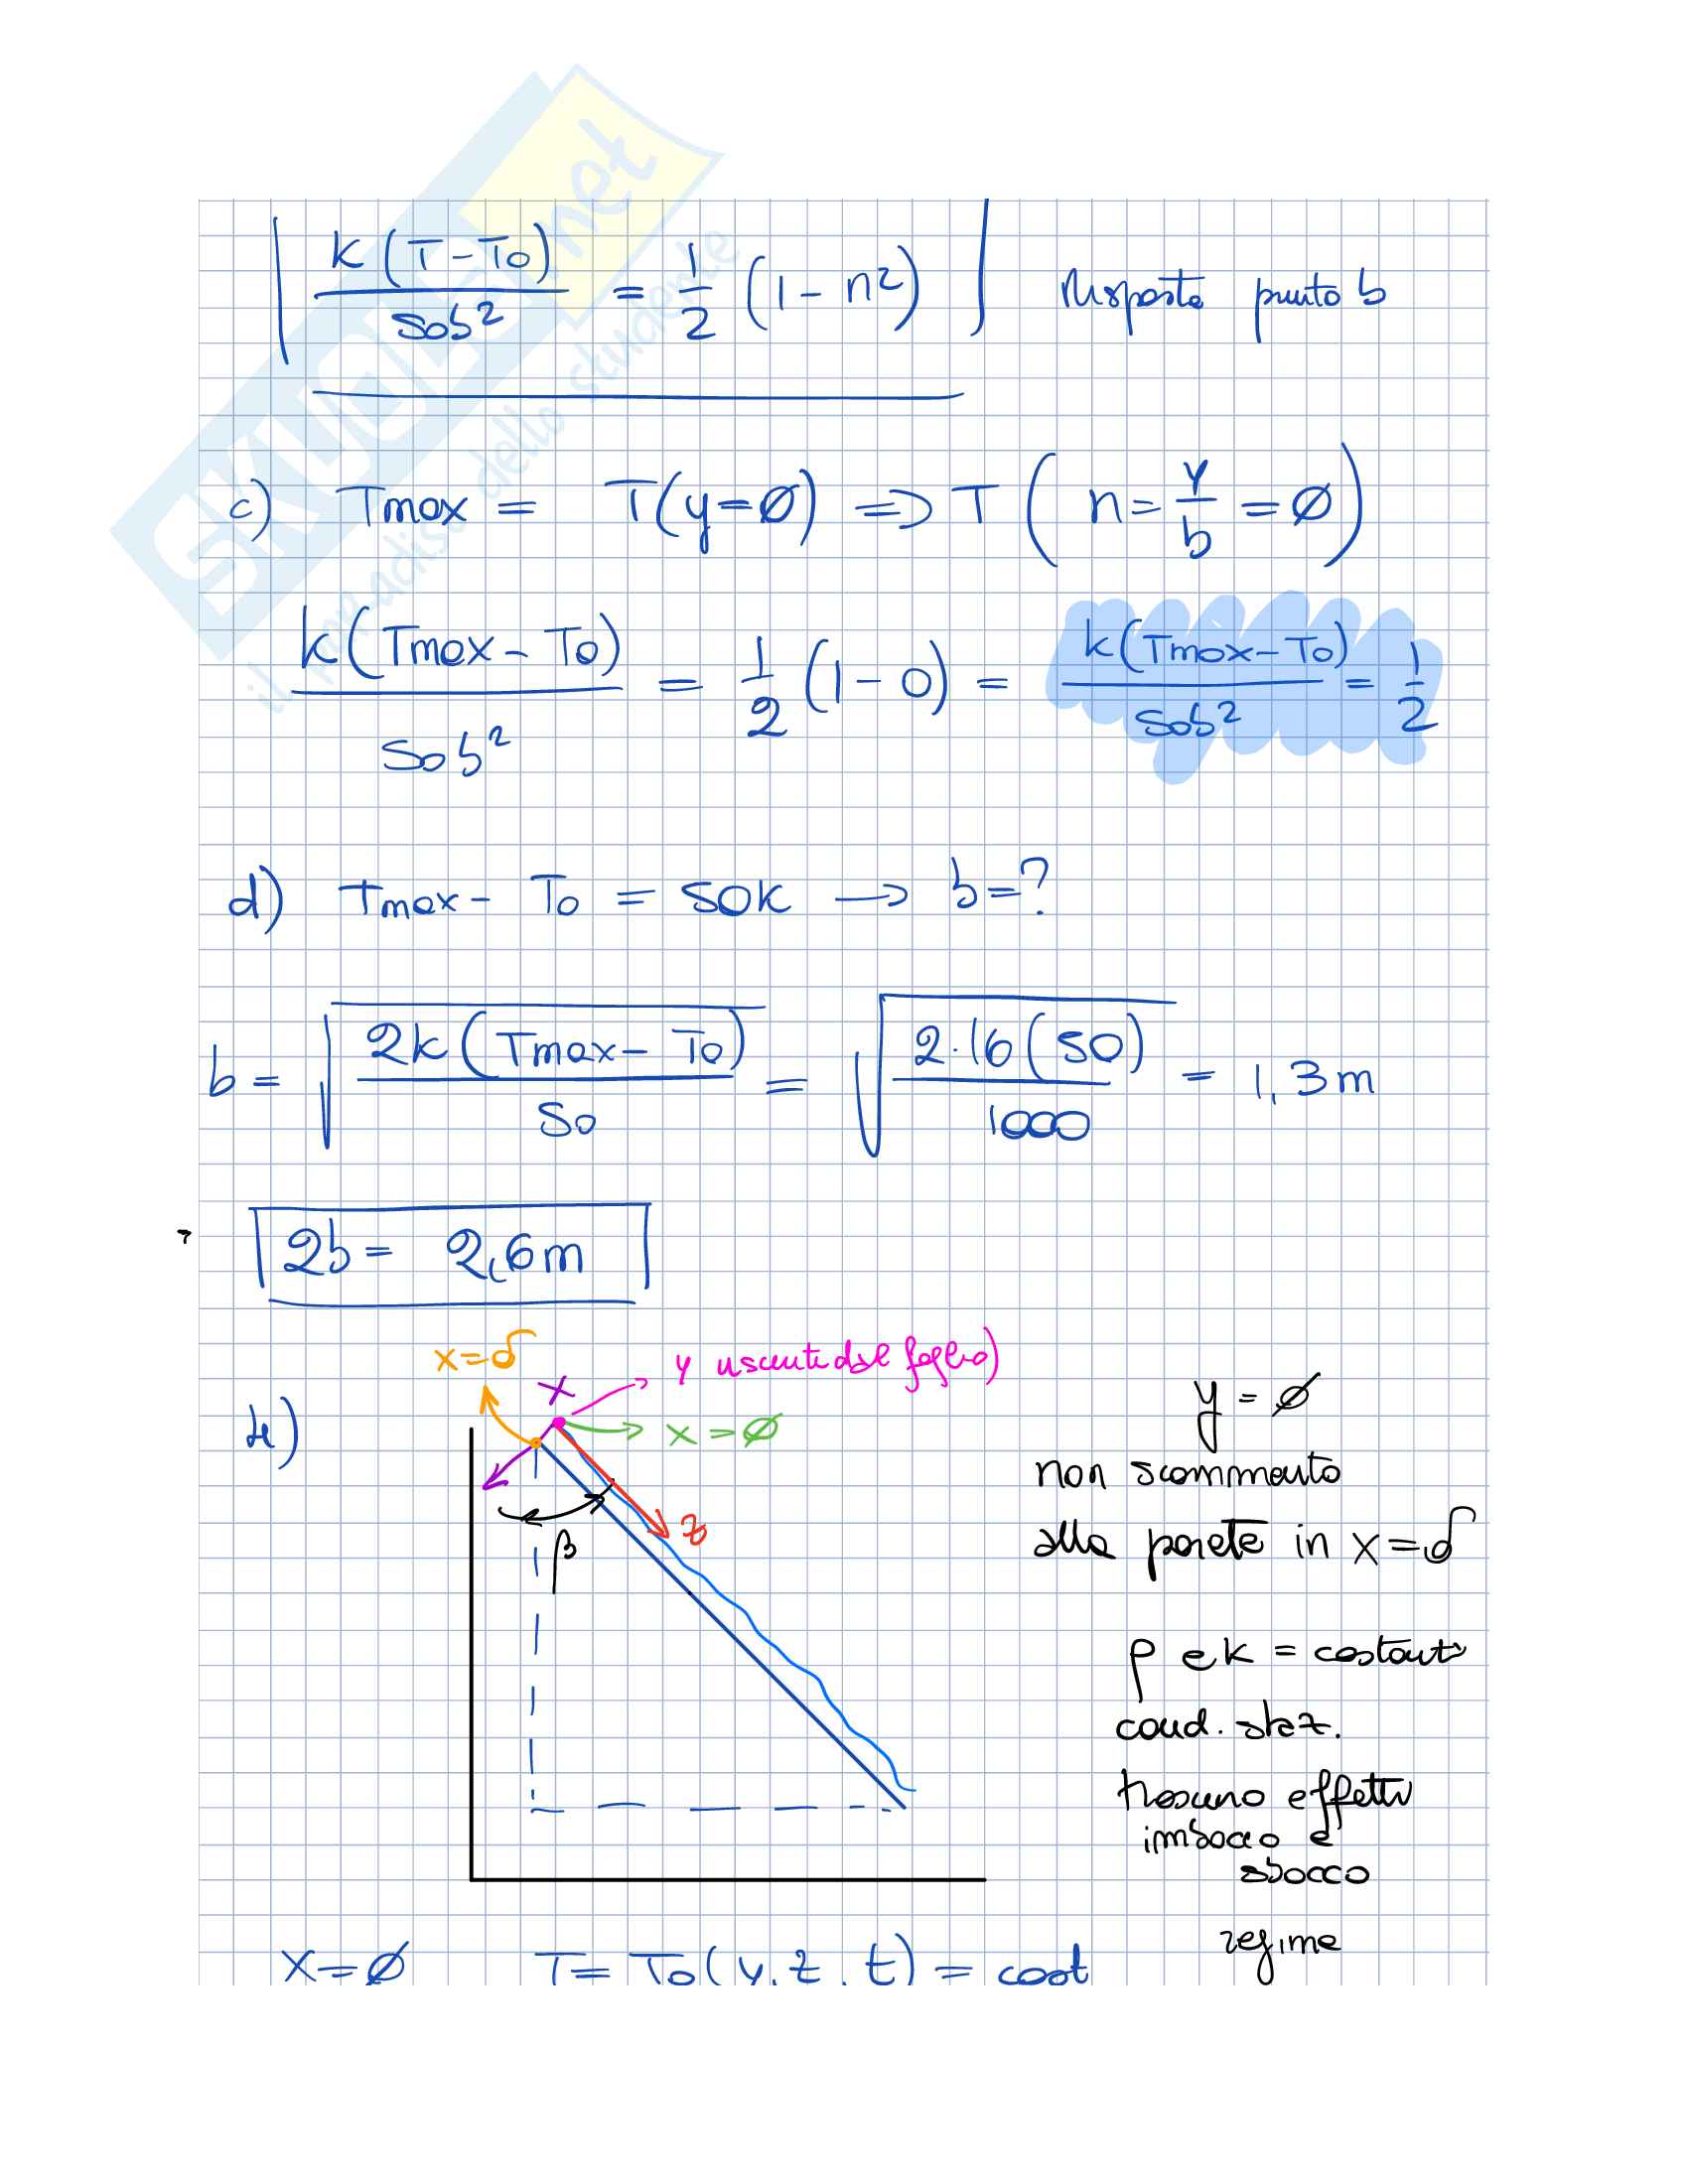 SKUOLA.net
il paradiso dello studente
k(T-To) / Sob² = 1/2 (1-n²) Risposta punto b
c) Tmax = T(y=∅) => T ( n = y/b = ∅ )
k(Tmax-To) / Sob² = 1/2 (1-0) = k(Tmax-To) / Sob² = 1/2
d) Tmax - To = 50k → b=?
b = √(2k(Tmax-To) / So) = √(2·16(50) / 1000) = 1,3m
2b = 2,6m
x=δ
x
y uscente dal foglio)
x=∅
z
β
y = ∅
non scommento
alla parete in x=δ
ρ e k = costanti
cond. staz.
Nessuno effetti
imbocco e
sbocco
regime
x=∅ T= To(y,z,t) = cost